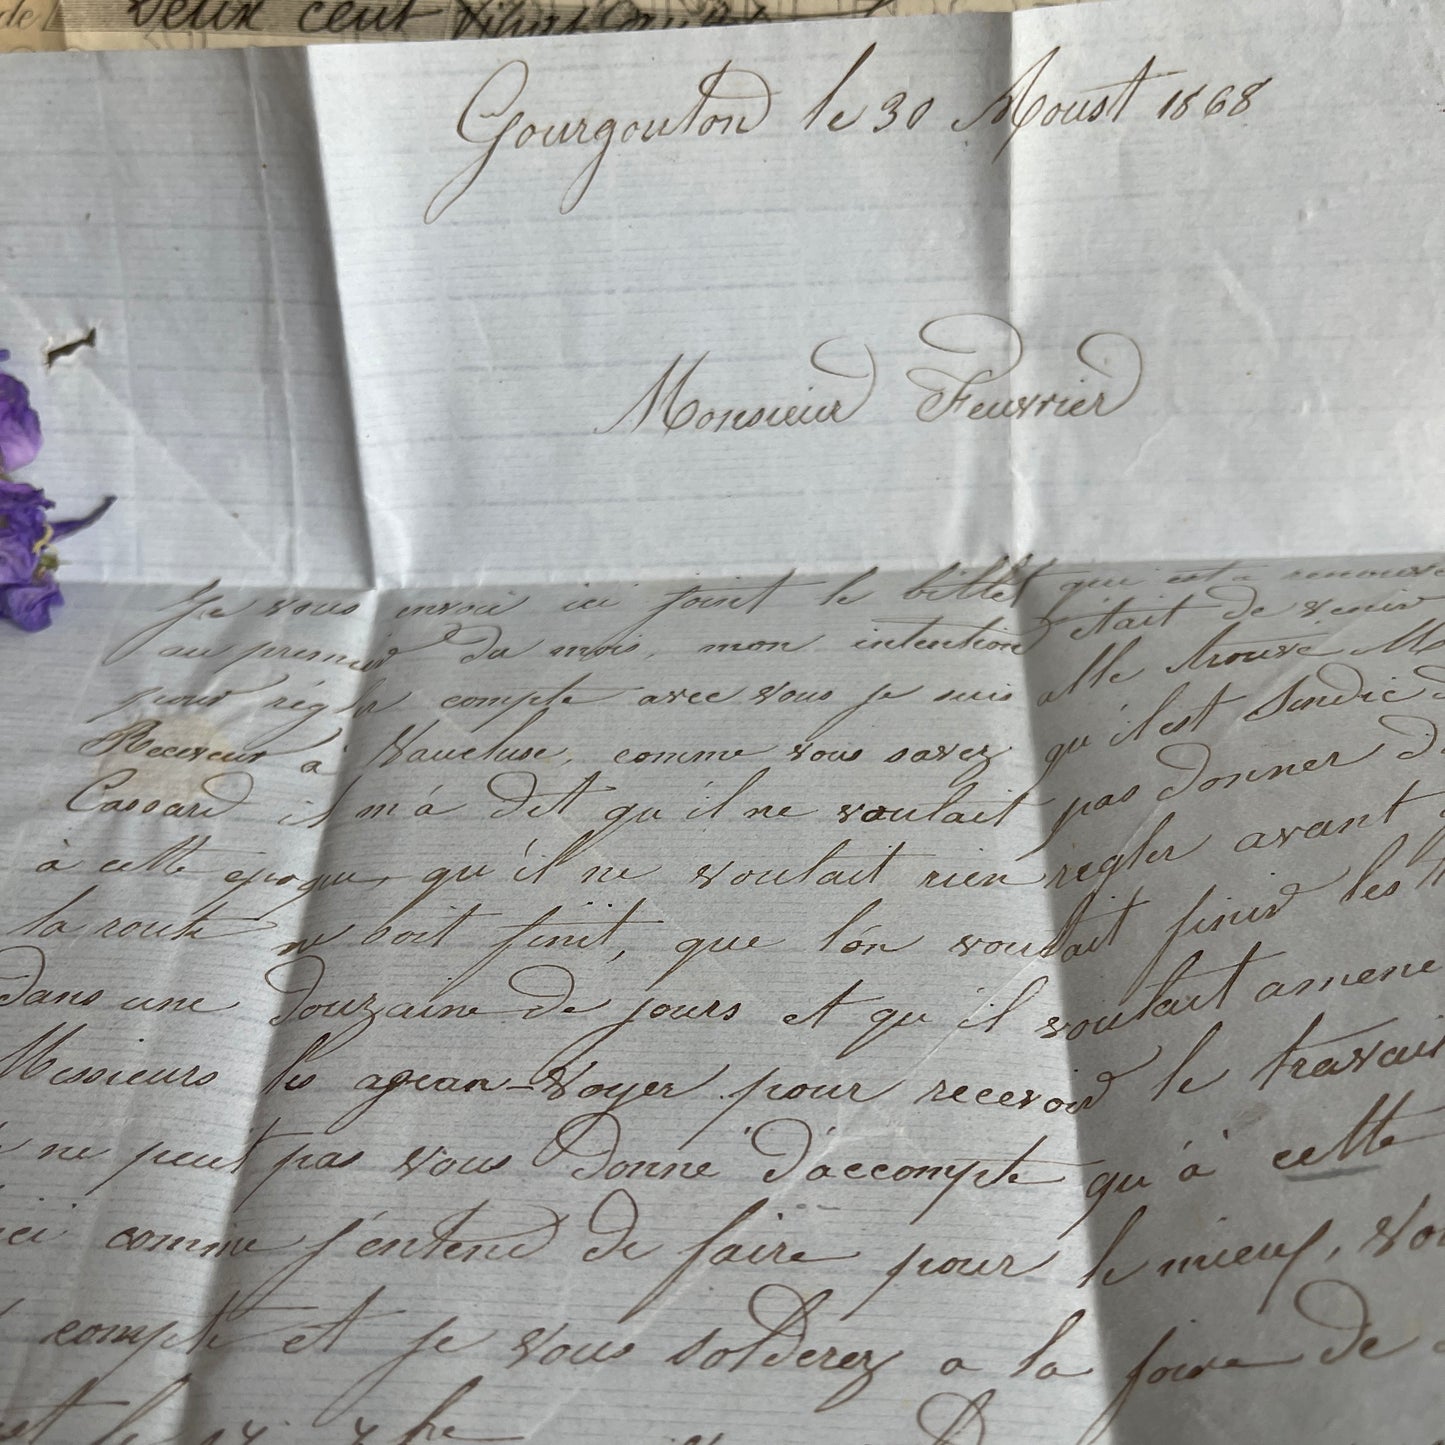 de
Deux cent
Gourgouton le 30 Aoust 1868
Monsieur Feuvrier
Je vous envoie ici joint le billet qui est a
au premier du mois, mon intention était de venir
pour régler compte avec vous je suis allé trouvé M
Receveur à Vaucluse, comme vous savez qu'il est Sindic
Cassard il m'a dit qu'il ne voulait pas donner
à cette epoque, qu'il ne voulait rien regler avant
la route ne soit finit, que l'on voulait finir les
dans une douzaine de jours et qu'il voulait amene
Messieurs les agean-voyer pour recevoir le travail
ne peut pas vous donné d'accompte qu'à cette
ici comme j'entend de faire pour le mieux, vou
compte et je vous solderez a la foire de
et le 17 7bre